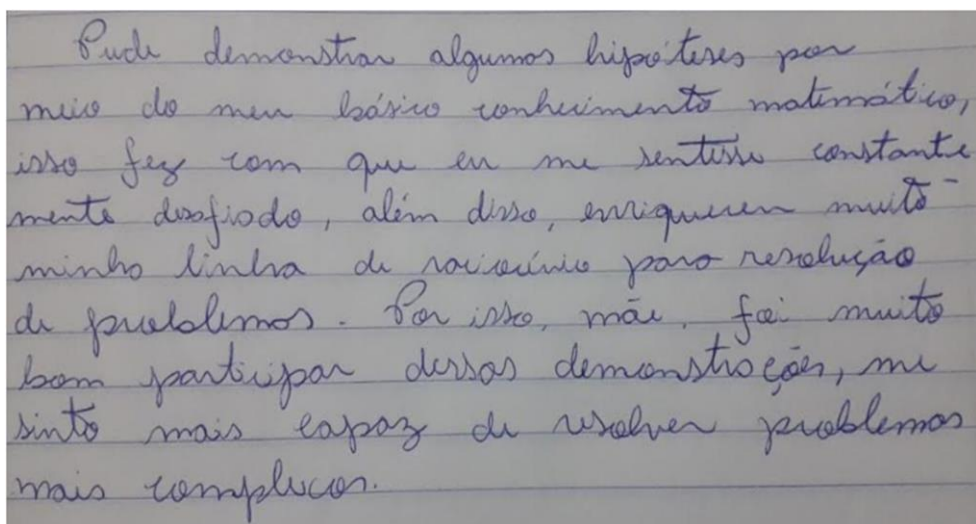 Pude demonstrar algumas hipóteses por
meio do meu básico conhecimento matemático,
isso fez com que eu me sentisse constante
mente desafiado, além disso, enriqueceu muito
minha linha de raciocínio para resolução
de problemas. Por isso, mãe, foi muito
bom participar dessas demonstrações, me
sinto mais capaz de resolver problemas
mais complucos.